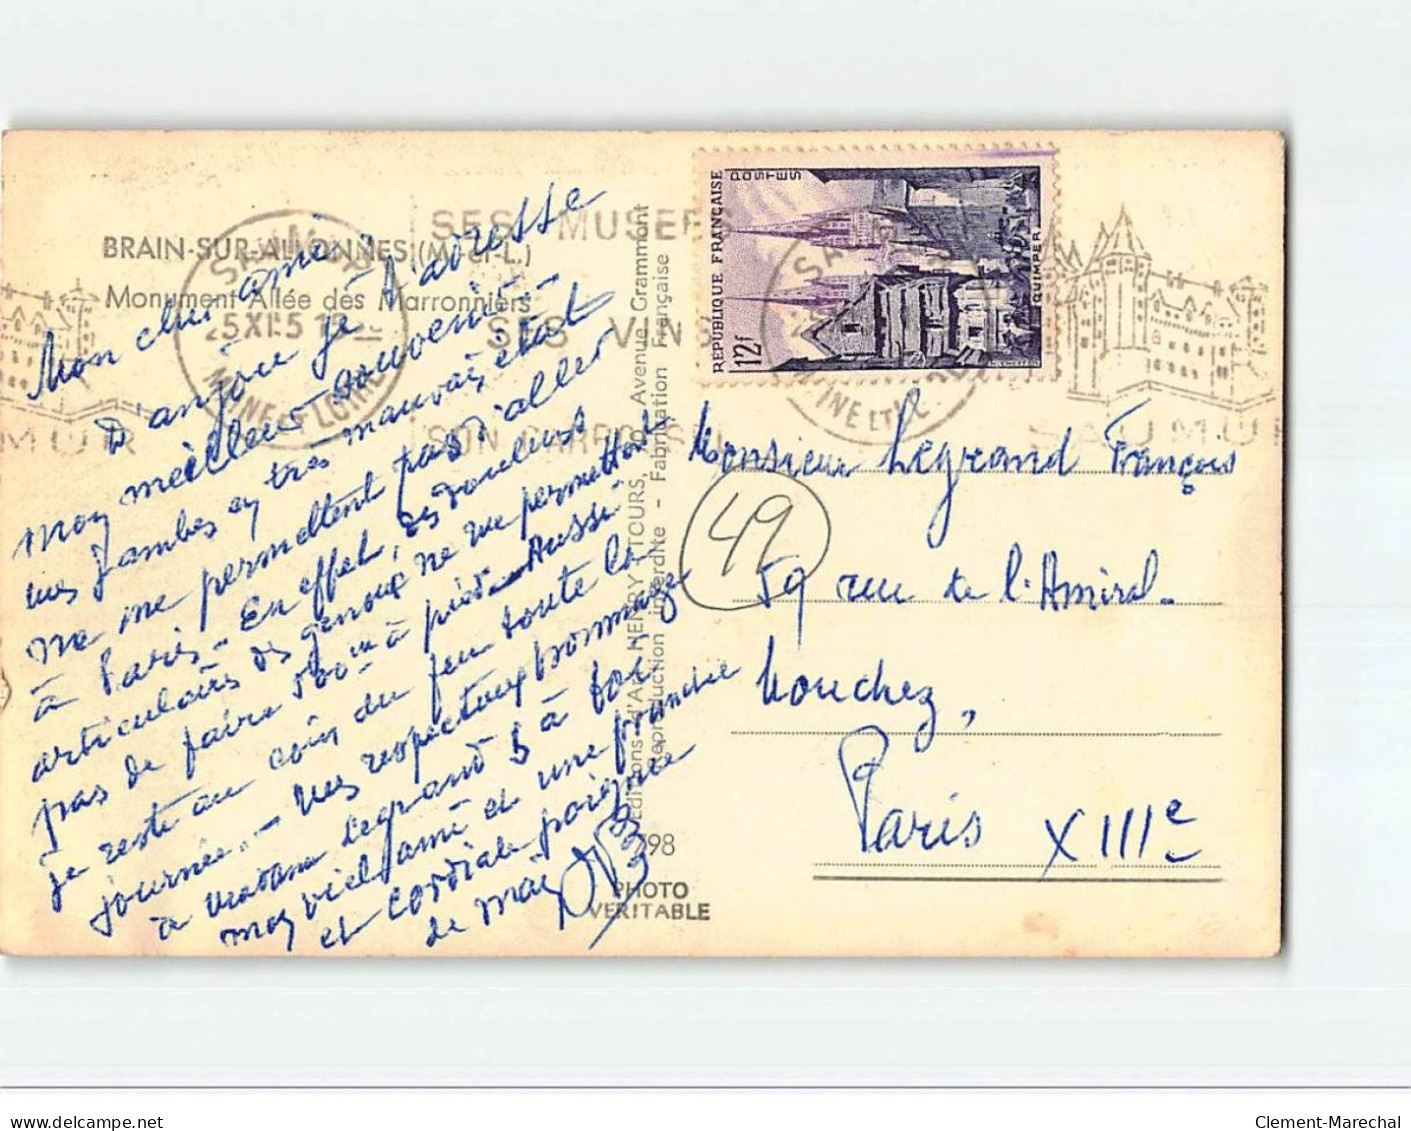 BRAIN-SUR-ALLONNES (M.-et-L.)
Monument Allée des Marronniers
Mon cher ami
D'anjou je t'adresse
mon meilleur souvenir.-
mes jambes en très mauvais état
ne me permettent pas d'aller
à Paris - En effet, des douleurs
articulaires des genoux ne me permettent
pas de faire 500m à pied - Aussi
je reste au coin du feu toute la
journée.- Mes respectueux hommages
à madame Legrand & à toi
mon vieil ami et une franche
et cordiale poignée
de main
798
PHOTO
VERITABLE
Editions d'Art HENRY - TOURS, Avenue Grammont
Reproduction interdite - Fabrication Française
SES MUSEES
SES VINS
SON CARROUSEL
SAUMUR
MAINE ET LOIRE
SAUMUR
MUR
REPUBLIQUE FRANÇAISE
POSTES
12f
QUIMPER
49
Monsieur Legrand François
59 rue de l'Amiral-
Mouchez,
Paris XIIIe
delcampe.net
Clement-Marechal